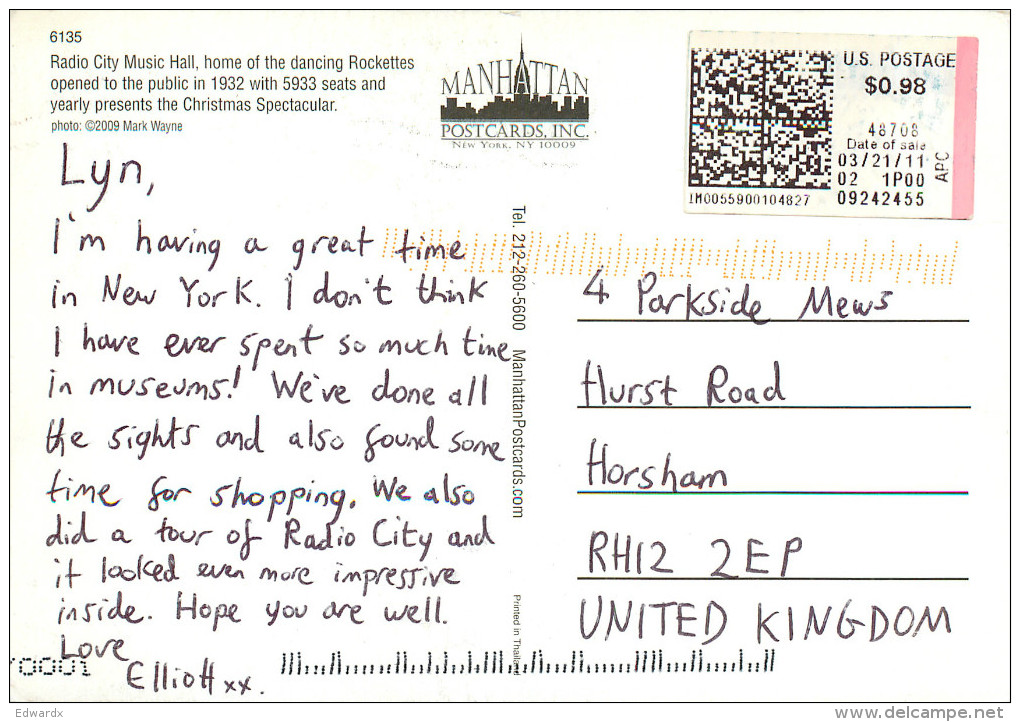 6135
Radio City Music Hall, home of the dancing Rockettes
opened to the public in 1932 with 5933 seats and
yearly presents the Christmas Spectacular.
photo: ©2009 Mark Wayne
MANHATTAN
POSTCARDS, INC.
NEW YORK, NY 10009
U.S. POSTAGE
$0.98
48708
Date of sale
03/21/11
02 1P00
09242455
APC
1M0055900104827
Lyn,
I'm having a great time
in New York. I don't think
I have ever spent so much time
in museums! We've done all
the sights and also found some
time for shopping. We also
did a tour of Radio City and
it looked even more impressive
inside. Hope you are well.
Love
Elliott xx.
Tel. 212-260-5600 ManhattanPostcards.com
Printed in Thailand
4 Parkside Mews
Hurst Road
Horsham
RH12 2EP
UNITED KINGDOM
Edwardx
www.delcampe.net